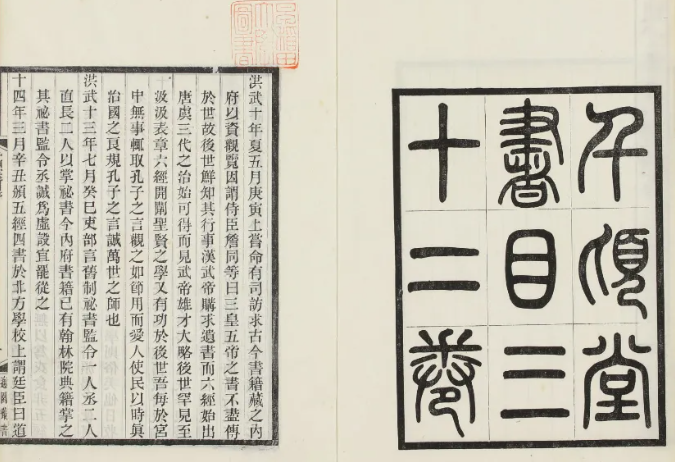 千頃堂
書目三
十二卷
洪武十年夏五月庚寅上嘗命有司訪求古今書籍藏之內
府以資觀覽因謂侍臣詹同等曰三皇五帝之書不盡傳
於世故後世鮮知其行事漢武帝購求遺書而六經始出
唐虞三代之治始可得而見武帝雄才大略後世罕見至
汲汲表章六經開闡聖賢之學又有功於後世吾每於宮
中無事輒取孔子之言觀之如節用而愛人使民以時眞
治國之良規孔子之言誠萬世之師也
洪武十三年七月癸巳吏部言舊制祕書監令一人丞二人
直長二人以掌祕書今內府書籍已有翰林院典籍掌之
其祕書監令丞誠爲虛設宜罷從之
十四年三月辛丑頒五經四書於北方學校上謂廷臣曰道
適園叢書